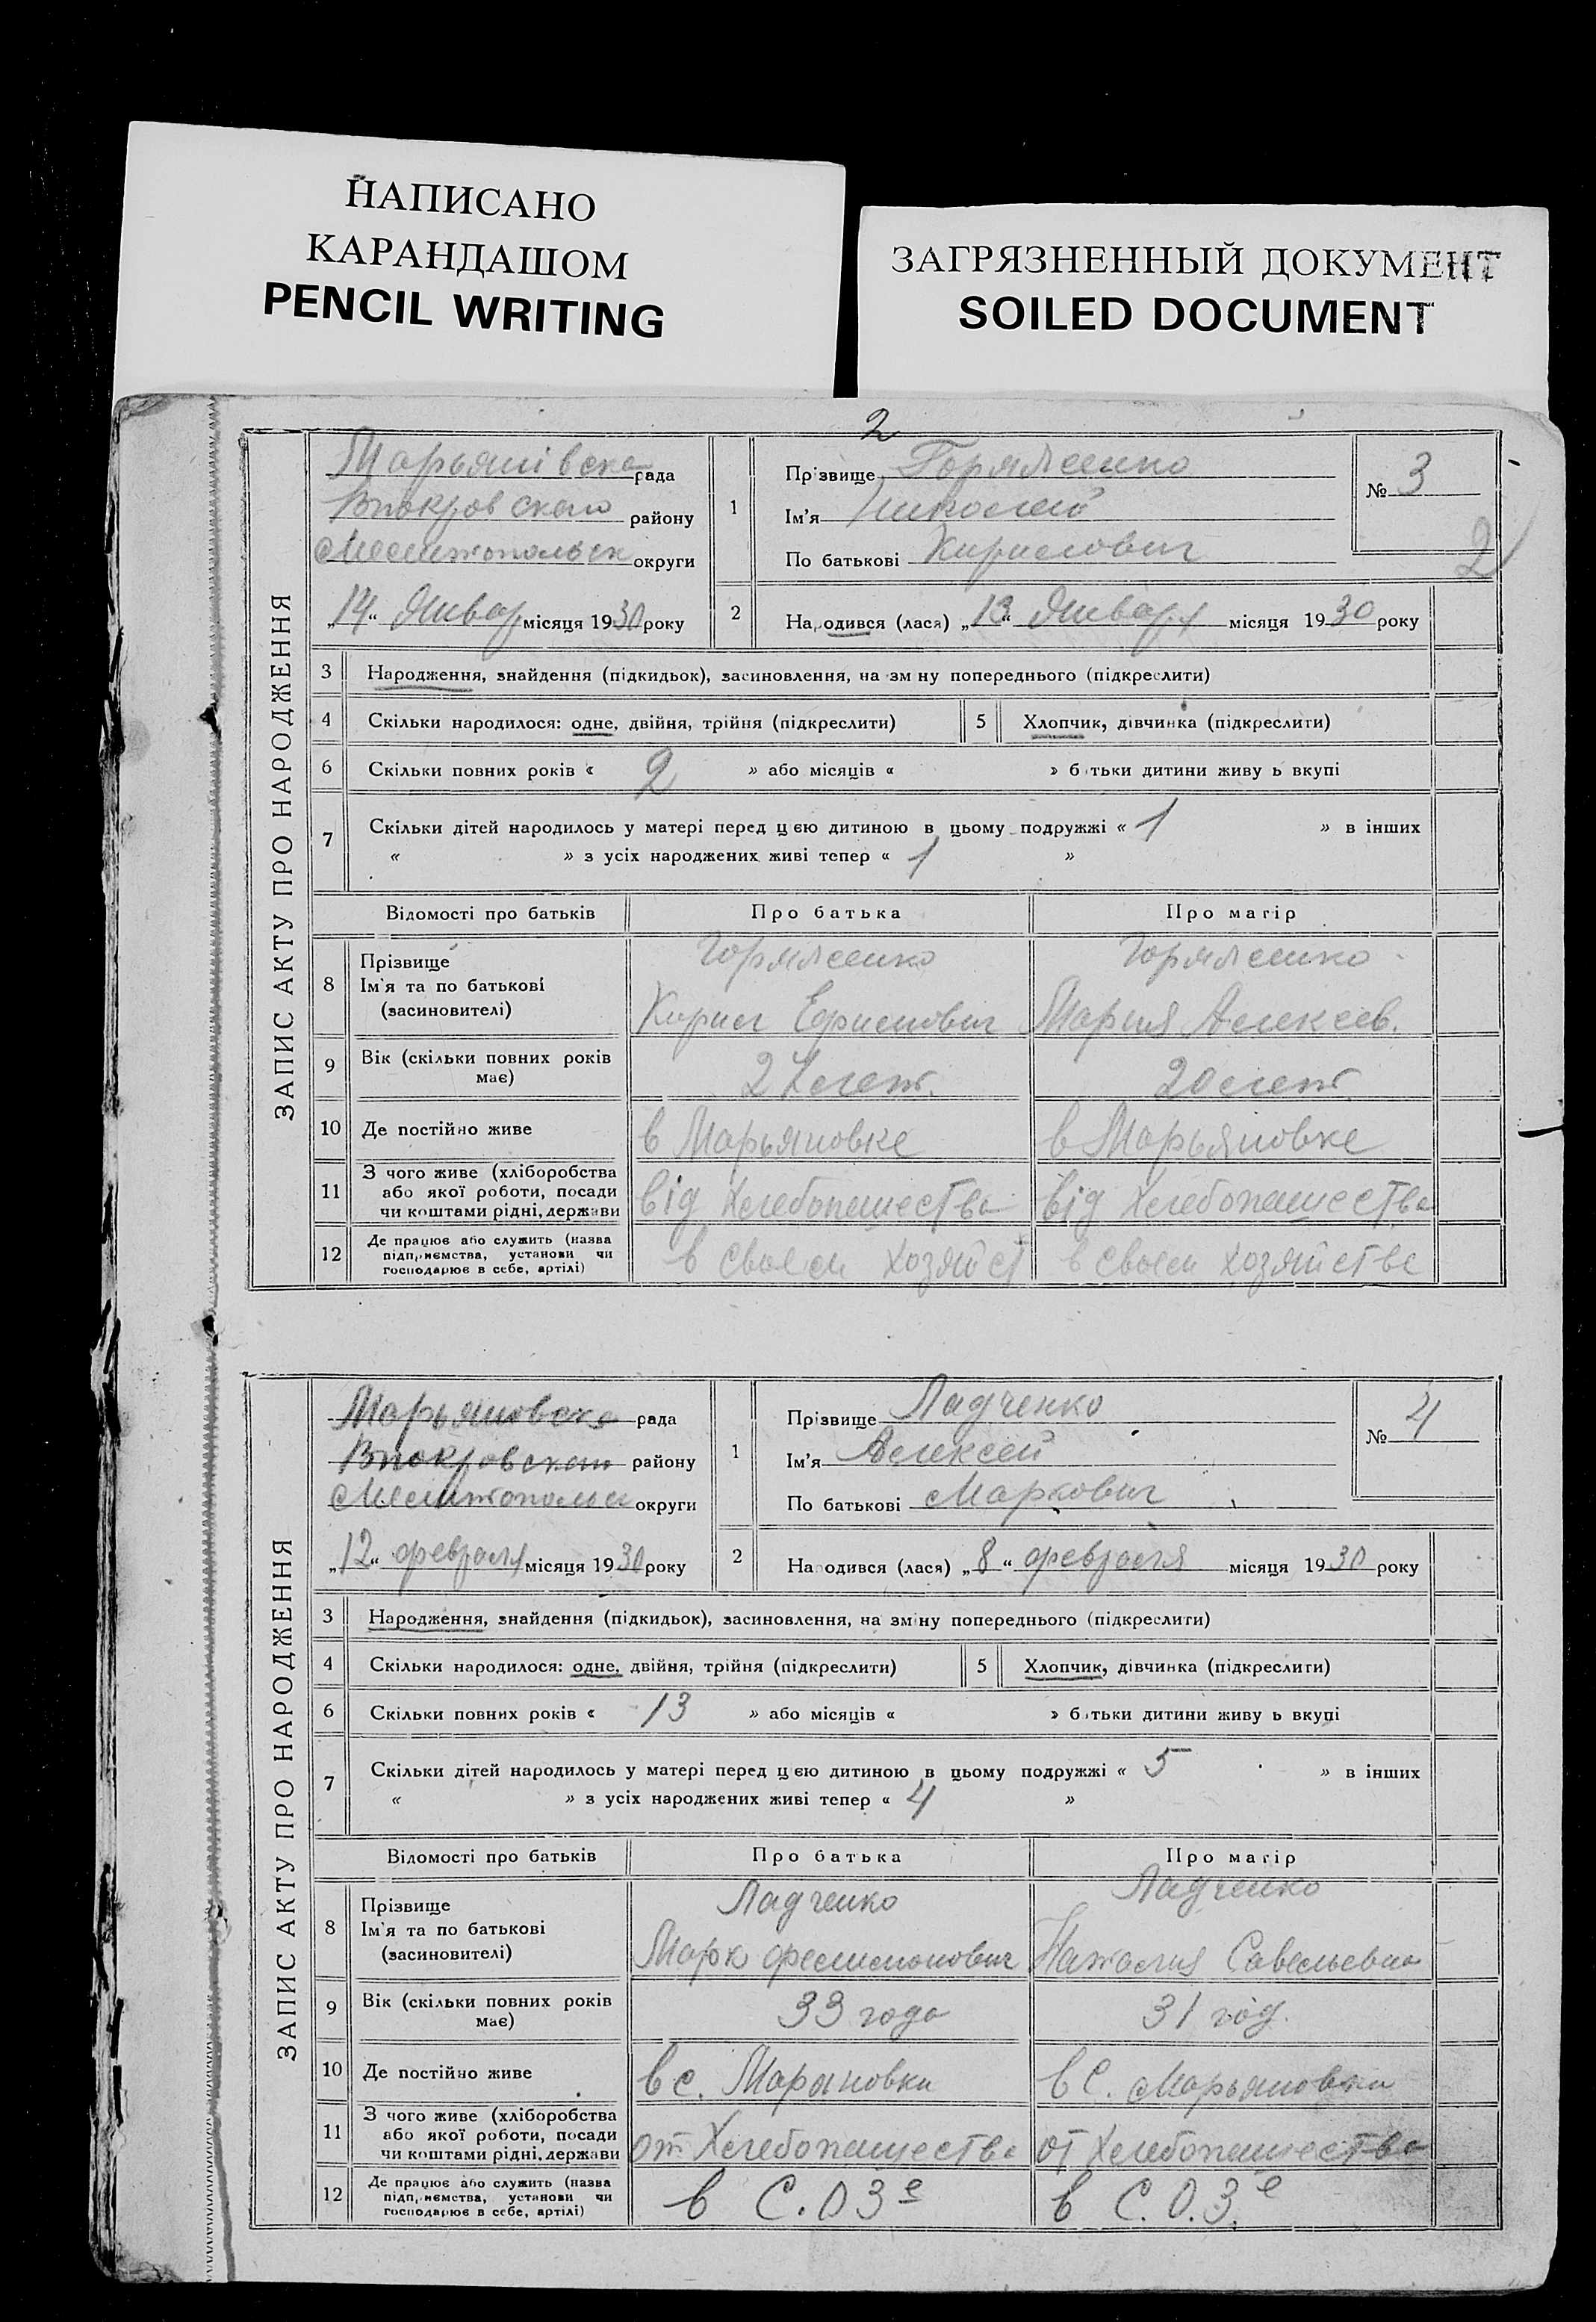 НАПИСАНО
КАРАНДАШОМ
PENCIL WRITING
ЗАГРЯЗНЕННЫЙ ДОКУМЕНТ
SOILED DOCUMENT
2
ЗАПИС АКТУ ПРО НАРОДЖЕННЯ
Марьянівська рада
Впокровского району
Мелитопольск округи
„14“ Январ місяця 1930 року
1
Прізвище
Ім'я Николай
По батькові Кирилович
№ 3
2
2 Народився (лася) „13“ Января місяця 1930 року
3 Народження, знайдення (підкидьок), засиновлення, на зміну попереднього (підкреслити)
4 Скільки народилося: одне, двійня, трійня (підкреслити) 5 Хлопчик, дівчинка (підкреслити)
6 Скільки повних років « 2 » або місяців « » батьки дитини живуть вкупі
7 Скільки дітей народилось у матері перед цією дитиною в цьому подружжі « 1 » в інших
« » з усіх народжених живі тепер « 1 »
Відомості про батьків Про батька Про матір
8 Прізвище Ім'я та по батькові (засиновителі)
Кирил Мария Алексеев.
9 Вік (скільки повних років має) 24 лет. 20 лет
10 Де постійно живе в Марьяновке в Марьяновке
11 З чого живе (хліборобства або якої роботи, посади чи коштами рідні, держави від Хлебопашества від Хлебопашества
12 Де працює або служить (назва підприємства, установи чи господарює в себе, артілі) в своем хозяйст в своем хозяйстве
ЗАПИС АКТУ ПРО НАРОДЖЕННЯ
Марьяновска рада
Впокровского району
Мелитопольск округи
„12“ февраля місяця 1930 року
1
Прізвище Ладченко
Ім'я Алексей
По батькові Маркович
№ 4
2 Народився (лася) „8“ февраля місяця 1930 року
3 Народження, знайдення (підкидьок), засиновлення, на зміну попереднього (підкреслити)
4 Скільки народилося: одне, двійня, трійня (підкреслити) 5 Хлопчик, дівчинка (підкреслити)
6 Скільки повних років « 13 » або місяців « » батьки дитини живуть вкупі
7 Скільки дітей народилось у матері перед цією дитиною в цьому подружжі « 5 » в інших
« » з усіх народжених живі тепер « 4 »
Відомості про батьків Про батька Про матір
8 Прізвище Ім'я та по батькові (засиновителі) Ладченко Ладченко
Марк Наталия Савельевна
9 Вік (скільки повних років має) 33 года 31 год.
10 Де постійно живе в с. Маряновки в С. Марьяновки
11 З чого живе (хліборобства або якої роботи, посади чи коштами рідні, держави от Хлебопашества от Хлебопашества
12 Де працює або служить (назва підприємства, установи чи господарює в себе, артілі) в С.ОЗе в С.О.З.е